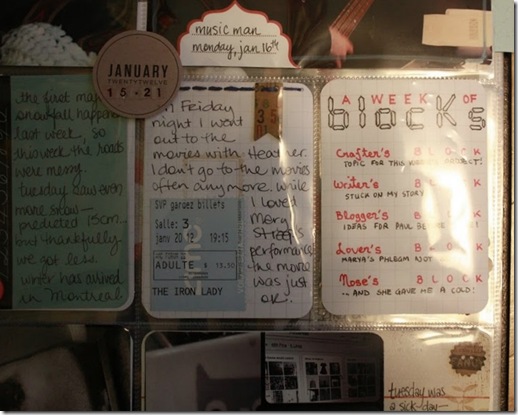 music man
monday, jan 16th
JANUARY
TWENTYTWELVE
15 • 21
the first major
snowfall happened
last week, so
this week the roads
were messy.
tuesday saw even
more snow—
predicted 15cm...
but thankfully
we got less.
winter has arrived
in Montreal.
on Friday
night I went
out to the
movies with Heather.
I don't go to the movies
often anymore. while
I loved
Meryl
Streep's
performance
the movie
was just
ok.
SVP gardez billets
Salle: 3
janv 20 12 19:15
ADULTE $ 13.50
THE IRON LADY
A WEEK OF
blocks
Crafter's BLOCK
TOPIC FOR THIS PROJECT!
Writer's BLOCK
STUCK ON MY STORY
Blogger's BLOCK
IDEAS FOR
Lover's BLOCK
MARYA'S PHLEGM NOT
Nose's BLOCK
...AND SHE GAVE ME A COLD!
tuesday was
a sick-day—